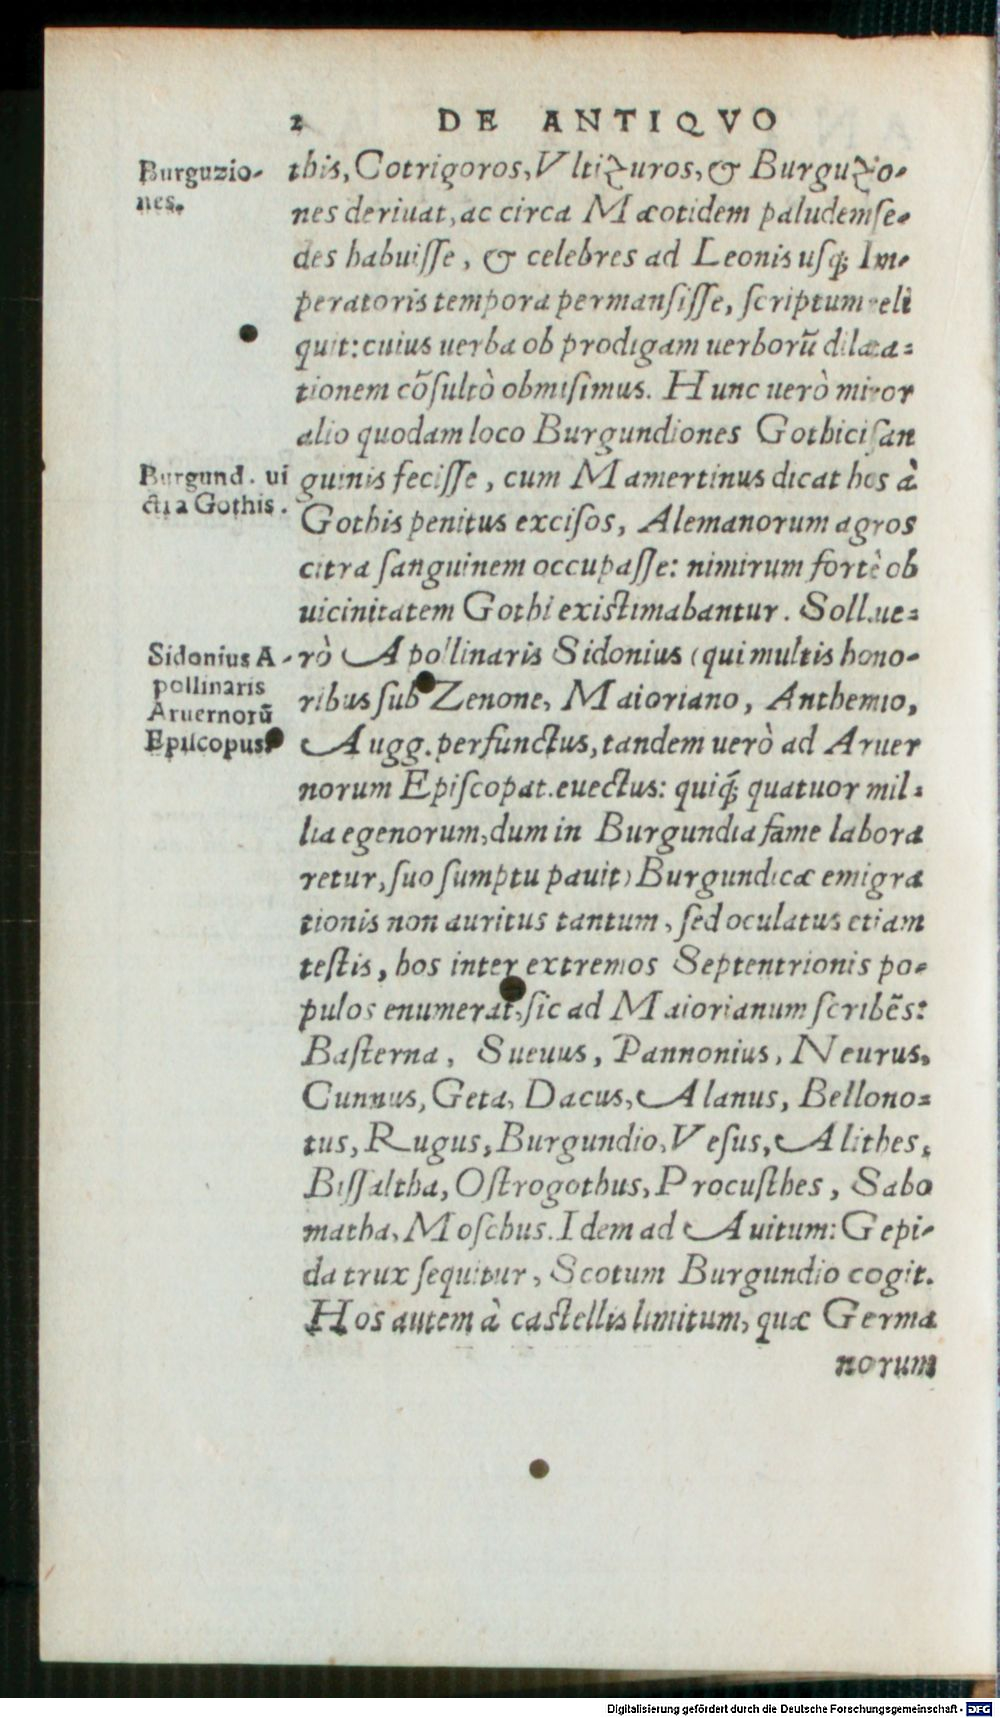 2 DE ANTIQVO
Burguzio-
nes.
this, Cotrigoros, Vltizuros, & Burguzio-
nes deriuat, ac circa Mæotidem paludem se-
des habuisse, & celebres ad Leonis usq; Im-
peratoris tempora permansisse, scriptum reli
quit: cuius uerba ob prodigam uerborũ dilata-
tionem cõsultò obmisimus. Hunc uerò miror
alio quodam loco Burgundiones Gothici san
Burgund. ui
cti a Gothis.
guinis fecisse, cum Mamertinus dicat hos à
Gothis penitus excisos, Alemanorum agros
citra sanguinem occupasse: nimirum fortè ob
uicinitatem Gothi existimabantur. Soll. ue-
Sidonius A-
pollinaris
Aruernorũ
Episcopus.
rò Apollinaris Sidonius (qui multis hono-
ribus sub Zenone, Maioriano, Anthemio,
Augg. perfunctus, tandem uerò ad Aruer
norum Episcopat. euectus: quiq́; quatuor mil-
lia egenorum, dum in Burgundia fame labora
retur, suo sumptu pauit) Burgundicæ emigra
tionis non auritus tantum, sed oculatus etiam
testis, hos inter extremos Septentrionis po-
pulos enumerat, sic ad Maiorianum scribẽs:
Basterna, Sueuus, Pannonius, Neurus,
Cunnus, Geta, Dacus, Alanus, Bellono-
tus, Rugus, Burgundio, Vesus, Alithes,
Bissaltha, Ostrogothus, Procusthes, Sabo
matha, Moschus. Idem ad Auitum: Gepi-
da trux sequitur, Scotum Burgundio cogit.
Hos autem à castellis limitum, quæ Germa
norum
Digitalisierung gefördert durch die Deutsche Forschungsgemeinschaft - DFG